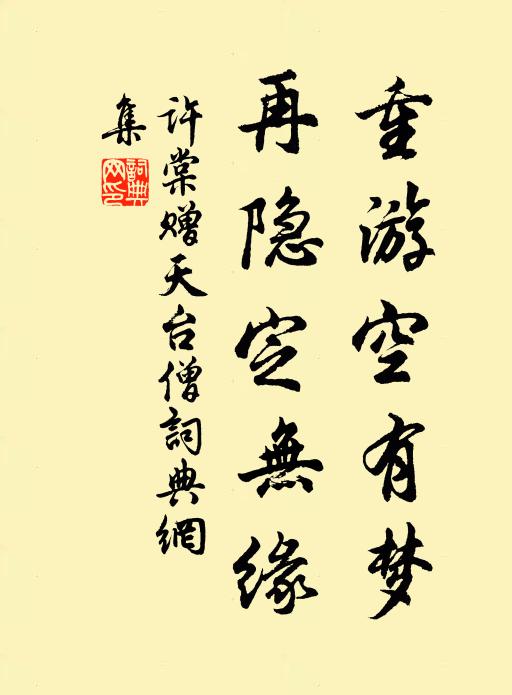 重游空有梦
再隐定無缘
许棠赠天台僧詞典網
集
詞典
网印